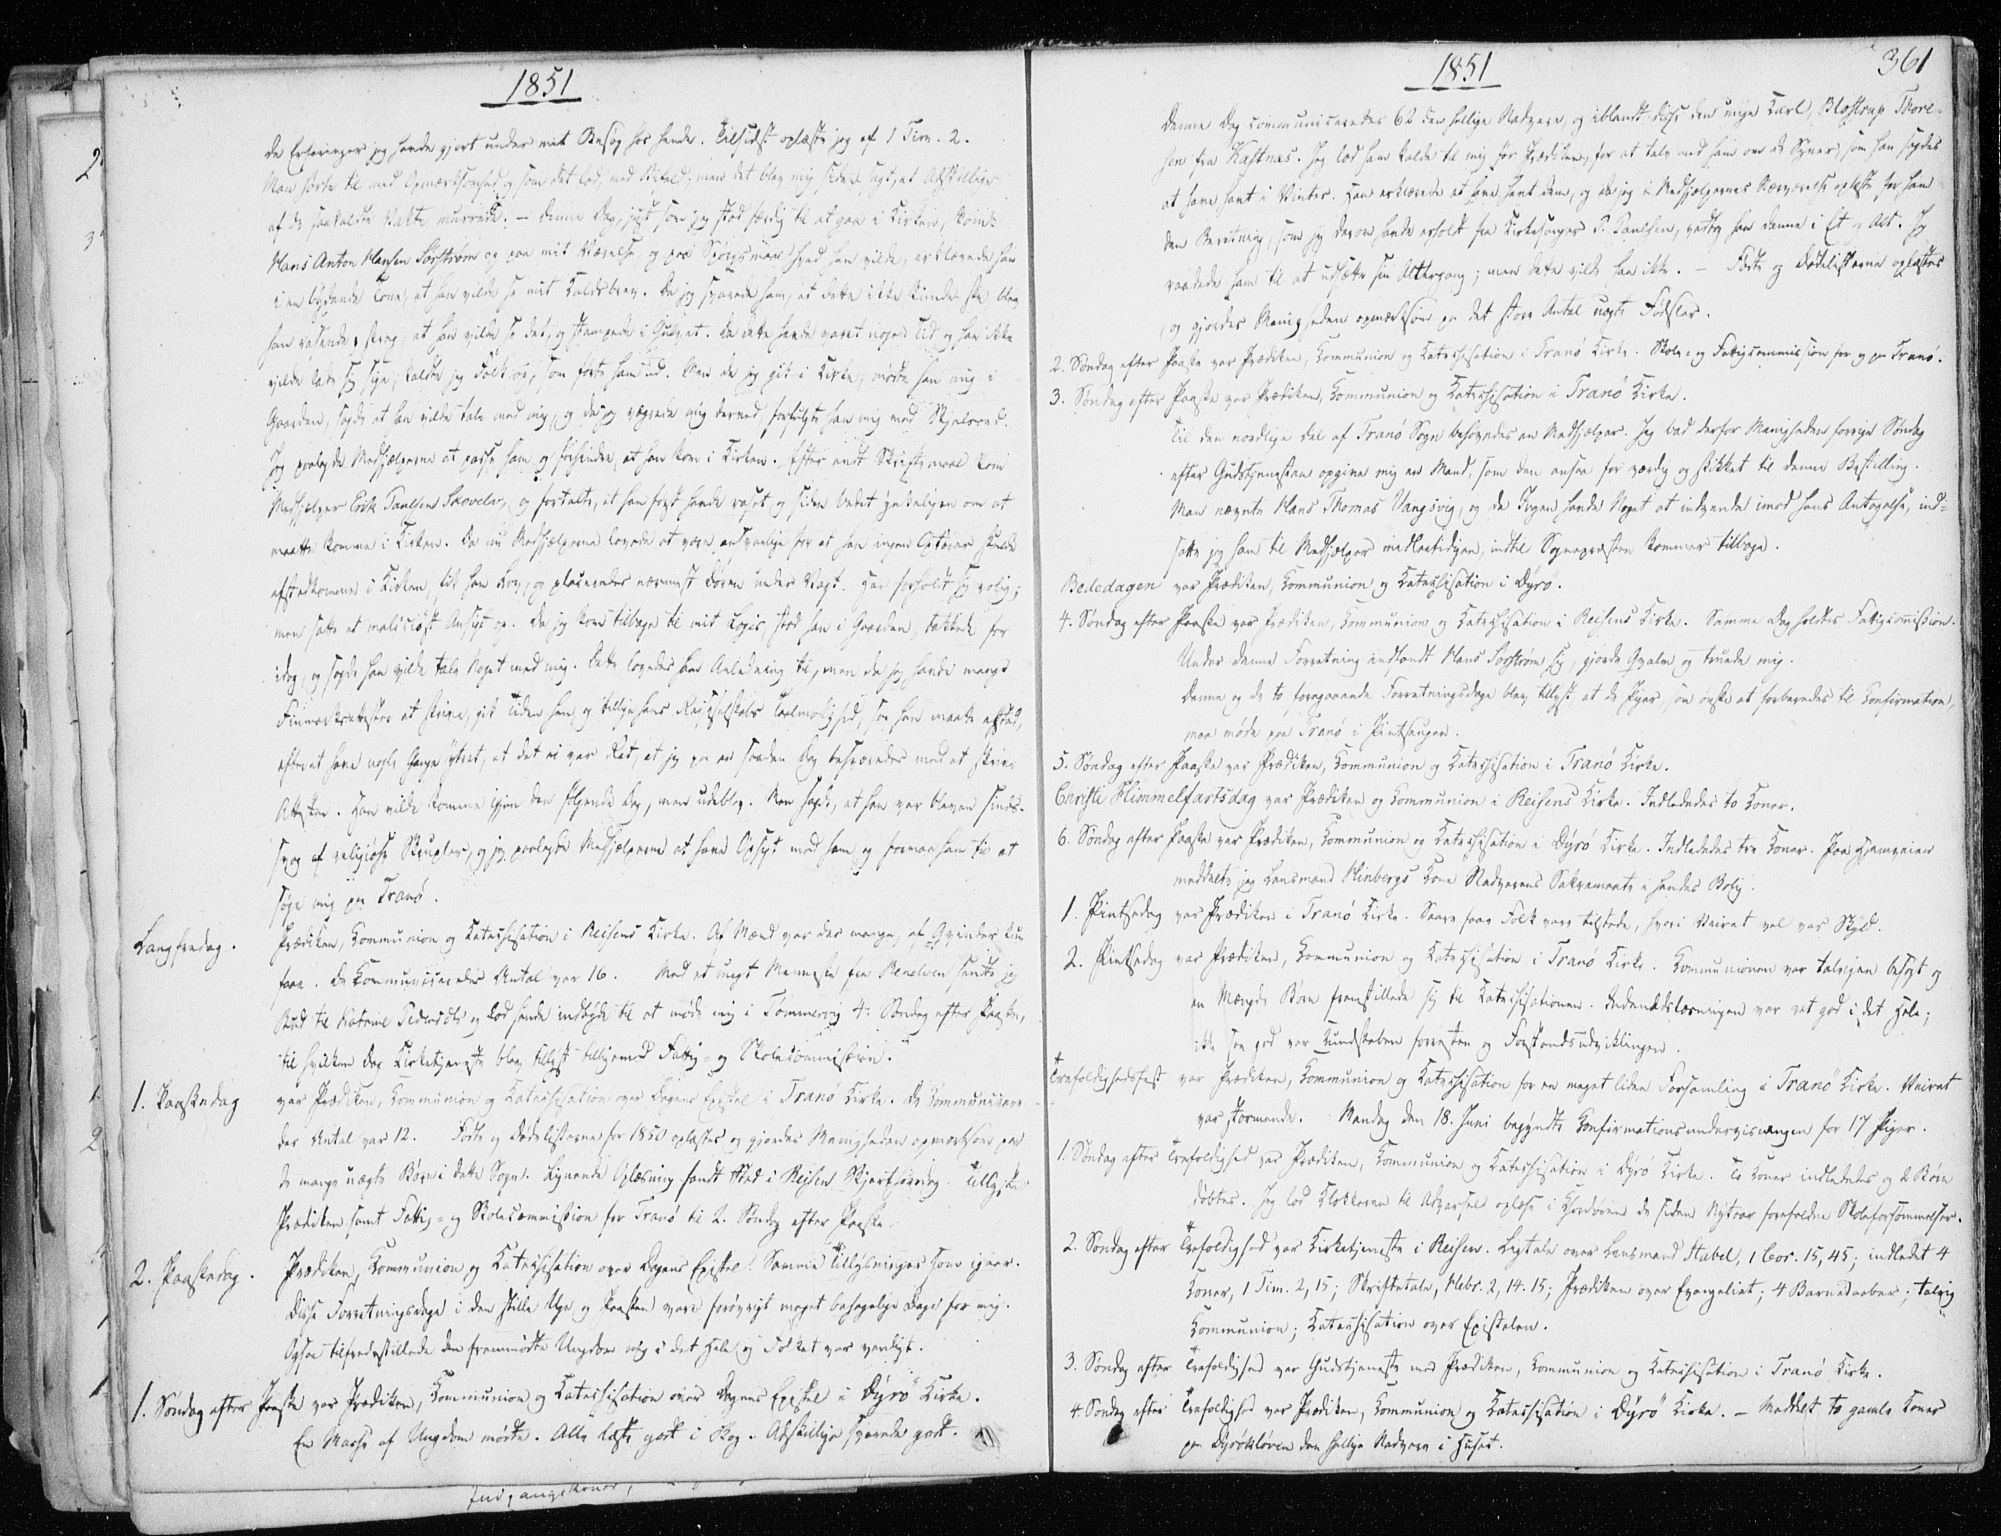 1851
de Erfaringer jeg havde gjort under mit Besøg hos hende. Tilsidst oplæste jeg af 1 Tim. 2.
Man hørte til med Opmærksomhed og som det lod, med Bifald; men det blev mig siden sagt, at Adskillige
af de saakaldte Vakte murrede. – Denne Dag, just som jeg stod færdig til at gaa i Kirken, kom
Hans Anton Hansen Sørstrøm op paa mit Værelse, og paa Spørgsmaal hvad han vilde, erklærede han
i en bydende Tone, at han vilde se mit Kaldsbrev. Da jeg svarede ham, at dette ikke kunde ske, blev
han rasende, skreg, at han vilde se det, og stampede i Gulvet. Da dette havde varet nogen Tid og han ikke
vilde lade sig sige, kaldte jeg Folk op, som førte ham ud. Men da jeg gik i Kirke, mødte han mig i
Gaarden, sagde at han vilde tale med mig, og da jeg vægrede mig derved, forfulgte han mig med Skjelsord.
Jeg paalagde Medhjælperne at passe ham og forhindre, at han kom i Kirken. Efter endt Skriftemaal kom
Medhjelper Erik Paulsen Skovelv, og fortalte, at han først havde raset og siden bedet ydmygeligen om at
maatte komme i Kirken. Da nu Medhjælperne lovede at være ansvarlige for at han ingen Optøier skulde
afstedkomme i Kirken, fik han Lov, og placeredes nærmest Døren under Vagt. Han forholdt sig rolig;
men satte et malitiøst Ansigt op. Da jeg kom tilbage til mit Logis, stod han i Gaarden, takkede for
idag, og sagde han vilde tale Noget med mig. Dette lovedes ham Anledning til, men da jeg havde mange
Finmarksattester at skrive, gik Tiden hen, og tillige hans Reiseselskabs Taalmodighed, saa han maatte afsted,
efterat have nogle Gange ytret, at det ei var Ret, at jeg paa en saadan Dag besværedes med at skrive
Attester. Han vilde komme igjen den følgende Dag, men udeblev. Man sagde, at han var bleven sinds-
svag af religiøse Skrupler, og jeg paalagde Medhjælperne at have Opsigt med ham og formaa ham til at
søge mig paa Tranø.
Langfredag. Prædiken, Kommunion og Katechisation i Reisens Kirke. Af Mænd var der mange, af Qvinder kun
faa. De Kommunicerendes Antal var 16. Med et ungt Menneske fra Renelven sendte jeg
Bud til Katrine Pedersdtr og lod hende indbyde til at møde mig i Tømmervig 4: Søndag efter Paaske,
til hvilken Dag Kirketjeneste blev tillyst tilligemed Fattig- og Skolecommission.
1. Paaskedag var Prædiken, Kommunion og Katechisation over Dagens Epistel i Tranø Kirke. De Kommunicere-
des Antal var 12. Føde og Dødslisterne for 1850 oplæstes og gjordes Menigheden opmærksom paa
de mange uægte Børn i dette Sogn. Lignende Oplæsning fandt Sted i Reisen Skjertorsdag. Tillystes
Prædiken samt Fattig- og Skolecommission for Tranø til 2. Søndag efter Paaske.
2. Paaskedag. Prædiken, Kommunion og Katechisation over Dagens Epistel. Samme Tillysninger som igaar.
Disse Forretningsdage i den stille Uge og Paasken vare forøvrigt meget behagelige Dage for mig.
Ogsaa tilfredsstillede den fremmødte Ungdom mig i det Hele og Folket var venligt.
1. Søndag efter Paaske var Prædiken, Kommunion og Katechisation over Dagens Epistel i Dyrø Kirke.
En Masse af Ungdom mødte. Alle læste godt i Bog. Adskillige svarede godt.
Indgangskoner,
1851
361
Denne Dag communiceredes 62 den hellige Nadvere, og iblandt disse den unge Karl, Blostrup Thore-
sen fra Kastnæs. Jeg lod ham kalde til mig før Prædiken, for at tale med ham om de Syner, som han sagdes
at have havt i Vinter. Han erklærede at have havt dem, og da jeg i Medhjælpernes Nærværelse oplæste for ham
den Beretning, som jeg derom havde erholdt fra Kirkesanger P. Paulsen, vedtog han denne i Et og Alt. Jeg
raadede ham til at udsætte sin Altergang; men dette vilde han ikke. – Føde og Dødslisterne oplæstes
og gjordes Menigheden opmærksom paa det store Antal uægte Fødsler.
2. Søndag efter Paaske var Prædiken, Kommunion og Katechisation i Tranø Kirke. Skole- og Fattigcommission for og paa Tranø.
3. Søndag efter Paaske var Prædiken, Kommunion og Katechisation i Tranø Kirke.
Til den nordlige Del af Tranø Sogn behøvedes en Medhjælper. Jeg bad derfor Menigheden forrige Søndag
efter Gudstjenesten opgive mig en Mand, som den ansaa for værdig og skikket til denne Bestilling.
Man nævnte Hans Thomas Vangsvig, og da Ingen havde Noget at indvende imod hans Antagelse, ind-
satte jeg ham til Medhjælper midlertidigen, indtil Sognepræsten kommer tilbage.
Bededagen var Prædiken, Kommunion og Katechisation i Dyrø.
4. Søndag efter Paaske var Prædiken, Kommunion og Katechisation i Reisens Kirke. Samme Dag holdtes Fattigcomission.
Under denne Forretning indfandt Hans Sørstrøm sig, gjorde Qvalm og truede mig.
Denne og de to foregaaende Forretningsdage blev tillyst at de Piger, som ønske at forberedes til Confirmation,
maa møde paa Tranø i Pintseugen.
5. Søndag efter Paaske var Prædiken, Kommunion og Katechisation i Tranø Kirke.
Christi Himmelfartsdag var Prædiken og Kommunion i Reisens Kirke. Indledes to Koner.
6. Søndag efter Paaske var Prædiken, Kommunion og Katechisation i Dyrø Kirke. Indledes tre Koner. Paa Hjemveien
meddelte jeg Lensmand Hinbergs Kone Nadverens Sakramente i hendes Bolig.
1. Pintsedag var Prædiken i Tranø Kirke. Saare faa Folk vare tilstede, hvori Veiret vel var Skyld.
2. Pintsedag var Prædiken, Kommunion og Katechisation i Tranø Kirke. Kommunionen var talrigen besøgt og
en Mængde Børn fremstillede sig til Katechisationen. Indenadslæsningen var ret god i det Hele;
ikke saa god var Kundskaben forresten og Forstandsudviklingen.
Trefoldighedsfest var Prædiken, Kommunion og Katechisation for en meget liden Forsamling i Tranø Kirke. Veiret
var stormende. Mandag den 18. Juni begyndte Confirmationsundervisningen for 17 Piger.
1. Søndag efter Trefoldighed var Prædiken, Kommunion og Katechisation i Dyrø Kirke. To Koner indledes og 2 Børn
døbtes. Jeg lod Klokkeren til Advarsel oplæse i Chordøren de siden Nytaar forefaldne Skoleforsømmelser.
2. Søndag efter Trefoldighed var Kirketjeneste i Reisen. Ligtale over Lensmand Stabel, 1 Cor. 15,45; indledet 4
Koner, 1 Tim. 2,15; Skriftetale, Hebr. 2, 14.15; Prædiken over Evangeliet; 4 Barnedaaber; talrig
Kommunion; Katechisation over Epistelen.
3. Søndag efter Trefoldighed var Gudstjeneste med Prædiken, Kommunion og Katechisation i Tranø Kirke.
4. Søndag efter Trefoldighed var Prædiken, Kommunion og Katechisation i Dyrø Kirke. – Meddelt to gamle Koner
paa Dyrøkløven den hellige Nadvere i Huset.